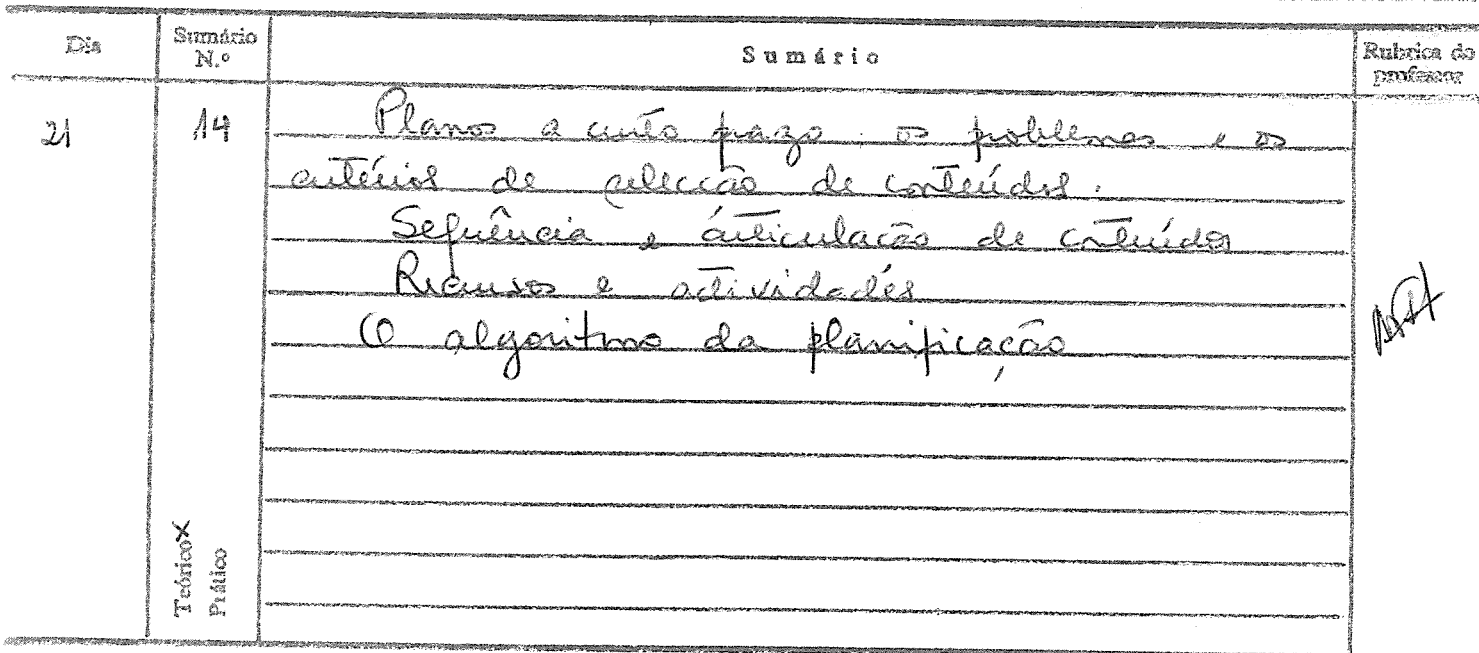 Dia
Sumário N.º
Sumário
Rubrica do professor
21
14
Planos a curto prazo. os problemas e os
critérios de selecção de conteúdos.
Sequência e articulação de conteúdos
Recursos e actividades
O algoritmo da planificação
Teórico X
Prático